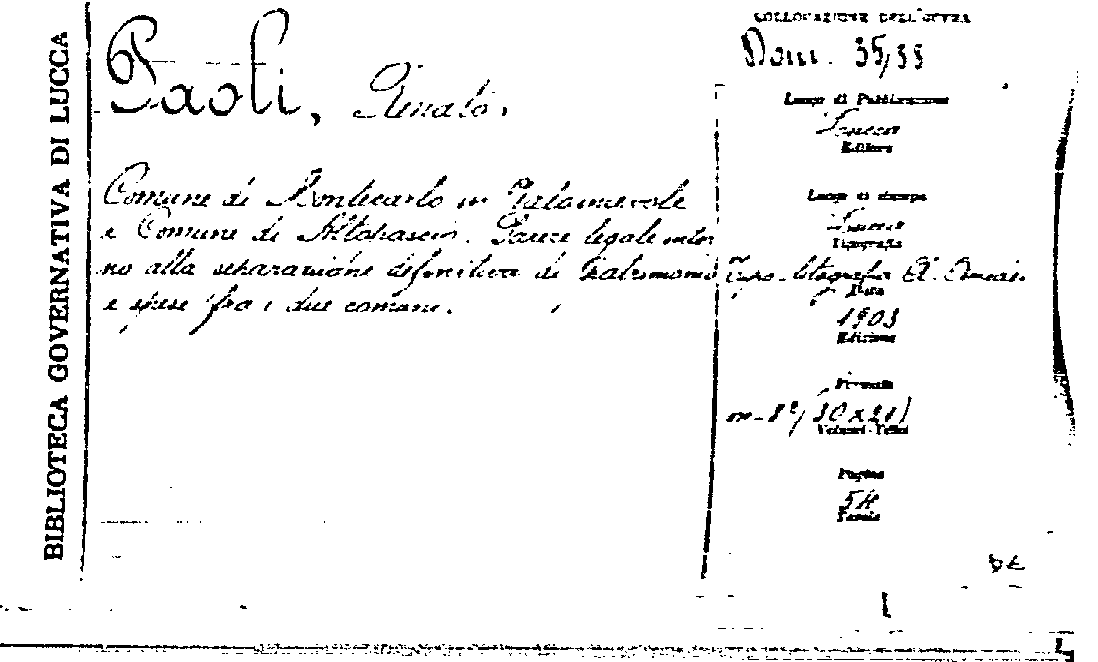 BIBLIOTECA GOVERNATIVA DI LUCCA
Paoli, Renato.
Comune di Montecarlo in Valdinievole
e Comune di Altopascio. Parere legale intor
no alla separazione definitiva di Patrimonio
e spese fra i due comuni.
COLLOCAZIONE DELL'OPERA
Dom. 35/33
Luogo di Pubblicazione
Lucca
Editore
Luogo di stampa
Lucca
Tipografia
Tipo-litografia
Data
1903
Edizione
Formato
in-8º (30x21)
Volumi-Tomi
Pagine
Tavole